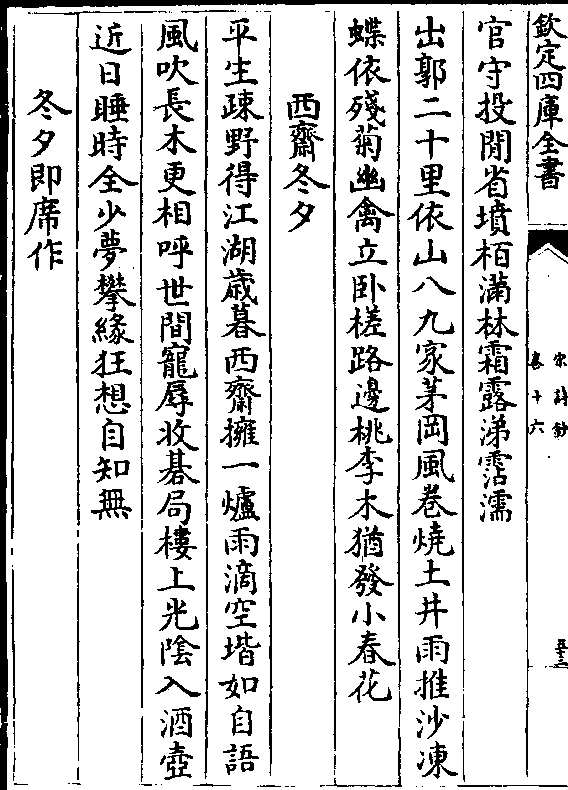 欽定四庫全書
宋詩鈔
卷十六
至三
官守投閒省墳栢滿林霜露涕霑濡
出郭二十里依山八九家茅岡風卷燒土井雨推沙凍
蝶依殘菊幽禽立卧槎路邊桃李木猶發小春花
西齋冬夕
平生疎野得江湖歳暮西齋擁一爐雨滴空堦如自語
風吹長木更相呼世間寵辱收碁局樓上光陰入酒壺
近日睡時全少夢攀緣狂想自知無
冬夕即席作